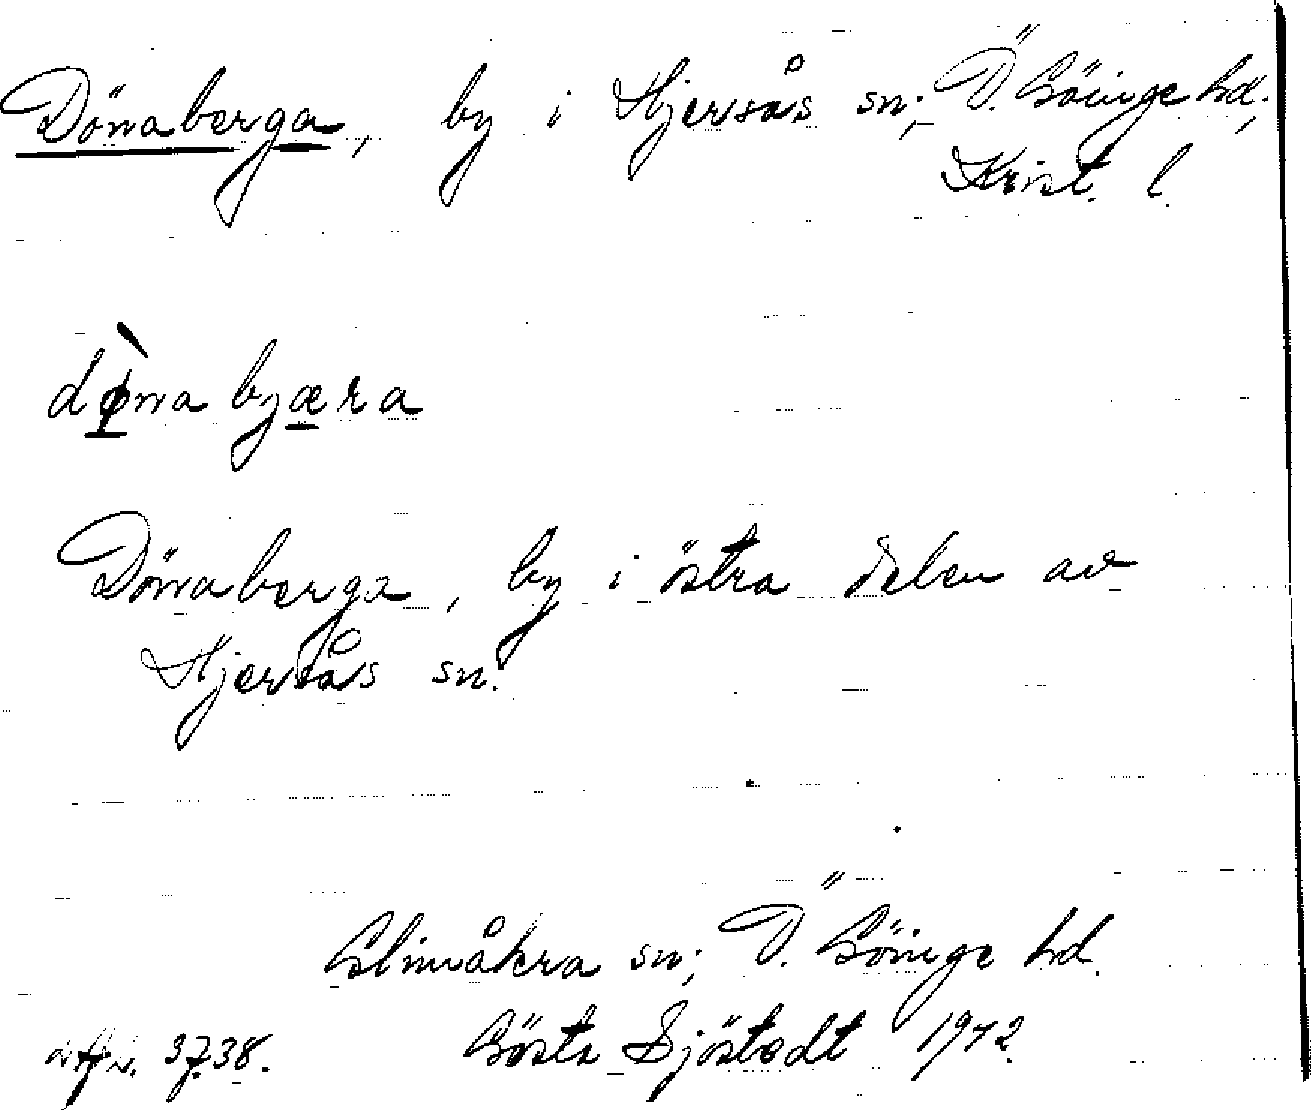 Dönaberga, by i Hjersås sn; Ö. Göinge hd,
Krist. l.
dø̀nabjæra
Dönaberga, by i östra delen av
Hjersås sn.
Glimåkra sn; Ö. Göinge hd.
3738. Gösta Sjöstedt 1972.